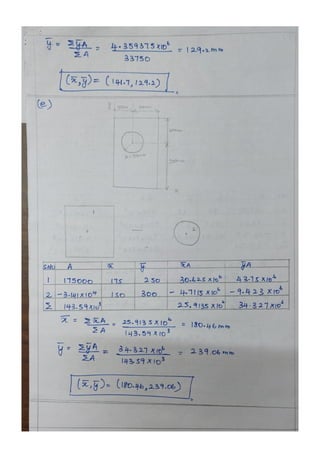 ȳ = ΣȳA / ΣA = 4.359375×10⁶ / 33750 = 129.2mm
(x̄,ȳ) = (141.7, 129.2)
(e)
1
2
SNO A x̄ ȳ x̄A ȳA
1 175000 175 250 30.625×10⁶ 43.75×10⁶
2 -3.141×10⁴ 150 300 -4.7115×10⁶ -9.423×10⁶
Σ 143.59×10³ 25.9135×10⁶ 34.327×10⁶
x̄ = Σx̄A / ΣA = 25.9135×10⁶ / 143.59×10³ = 180.46mm
ȳ = ΣȳA / ΣA = 34.327×10⁶ / 143.59×10³ = 239.06mm
(x̄,ȳ) = (180.46, 239.06)